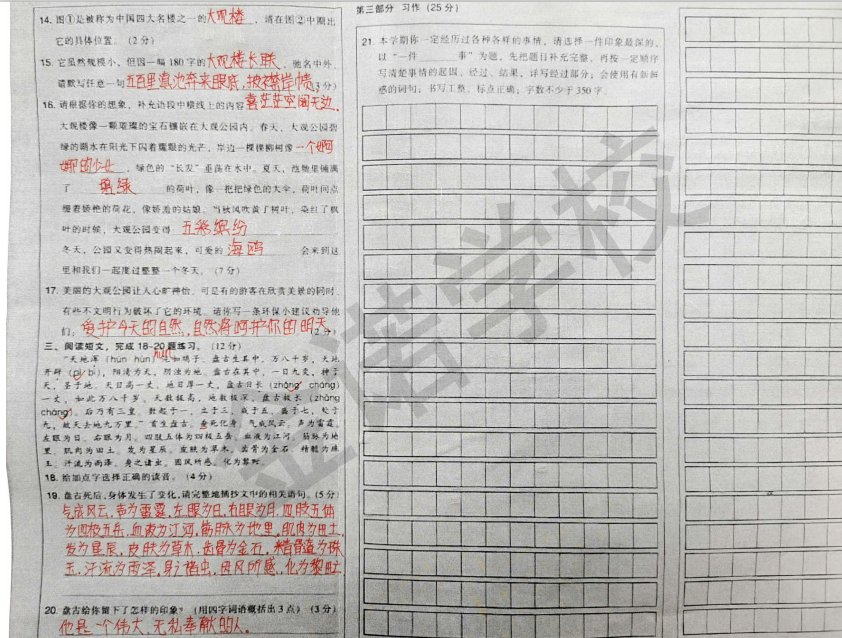 14. 图①是被称为中国四大名楼之一的大观楼，请在图②中圈出
它的具体位置。（2分）
15. 它虽然规模小，但因一幅180字的大观楼长联，驰名中外，
请默写任意一句五百里滇池奔来眼底，披襟岸帻，3分）
16. 请根据你的想象，补充语段中横线上的内容喜茫茫空阔无边。
大观楼像一颗璀璨的宝石镶嵌在大观公园内。春天，大观公园碧
绿的湖水在阳光下闪着耀眼的光芒，岸边一棵棵柳树像一个婀
娜的少女，绿色的“长发”垂荡在水中。夏天，池塘里铺满
了 墨绿 的荷叶，像一把把绿色的大伞，荷叶间点
缀着娇艳的荷花，像娇羞的姑娘。当秋风吹黄了树叶，染红了枫
叶的时候，大观公园变得 五彩缤纷
冬天，公园又变得热闹起来，可爱的 海鸥 会来到这
里和我们一起度过整整一个冬天。（7分）
17. 美丽的大观公园让人心旷神怡，可是有的游客在欣赏美景的同时，
有些不文明行为破坏了它的环境。请你写一条环保小建议劝导他
们：爱护今天的自然，自然将呵护你的明天 2分）
三、阅读短文，完成18-20题练习。（12分）
“天地浑（hún hùn）沌如鸡子，盘古生其中，万八千岁，天地
hùn
开辟（pì bì），阳清为天，阴浊为地。盘古在其中，一日九变，神于
天，圣于地。天日高一丈，地日厚一丈，盘古日长（zhǎng cháng）
一丈，如此万八千岁。天数极高，地数极深，盘古极长（zhǎng
cháng）。后乃有三皇。数起于一，立于三，成于五，盛于七，处于
九，故天去地九万里。”首生盘古，垂死化身。气成风云，声为雷霆，
左眼为日，右眼为月，四肢五体为四极五岳，血液为江河，筋脉为地
里，肌肉为田土，发为星辰，皮肤为草木，齿骨为金石，精髓为珠
玉，汗流为雨泽，身之诸虫，因风所感，化为黎甿。
18. 给加点字选择正确的读音。（4分）
19. 盘古死后，身体发生了变化，请完整地摘抄文中的相关语句。（5分）
气成风云，声为雷霆，左眼为日，右眼为月，四肢五体
为四极五岳，血液为江河，筋脉为地里，肌肉为田土，
发为星辰，皮肤为草木，齿骨为金石，精髓为珠
玉，汗流为雨泽，身之诸虫，因风所感，化为黎甿
20. 盘古给你留下了怎样的印象？（用四字词语概括出3点）（3分）
他是一个伟大，无私奉献的人。
第三部分 习作（25分）
21. 本学期你一定经历过各种各样的事情，请选择一件印象最深的，
以“一件 事”为题，先把题目补充完整，再按一定顺序
写清楚事情的起因、经过、结果，详写经过部分；会使用有新鲜
感的词句；书写工整、标点正确；字数不少于350字。
金诺学校